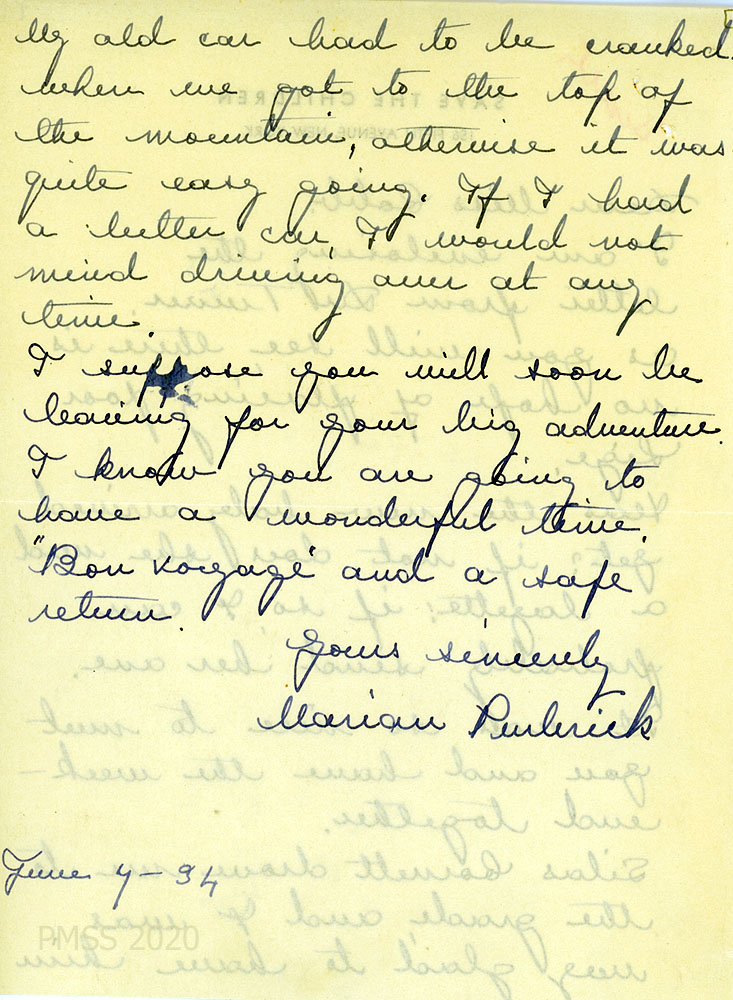 My old car had to be cranked
when we got to the top of
the mountain, otherwise it was
quite easy going. If I had
a better car, I would not
mind driving over at any
time.
I suppose you will soon be
leaving for your big adventure.
I know you are going to
have a wonderful time.
"Bon voyage" and a safe
return.
Yours sincerely
Marian
June 7-34
PMSS 2020